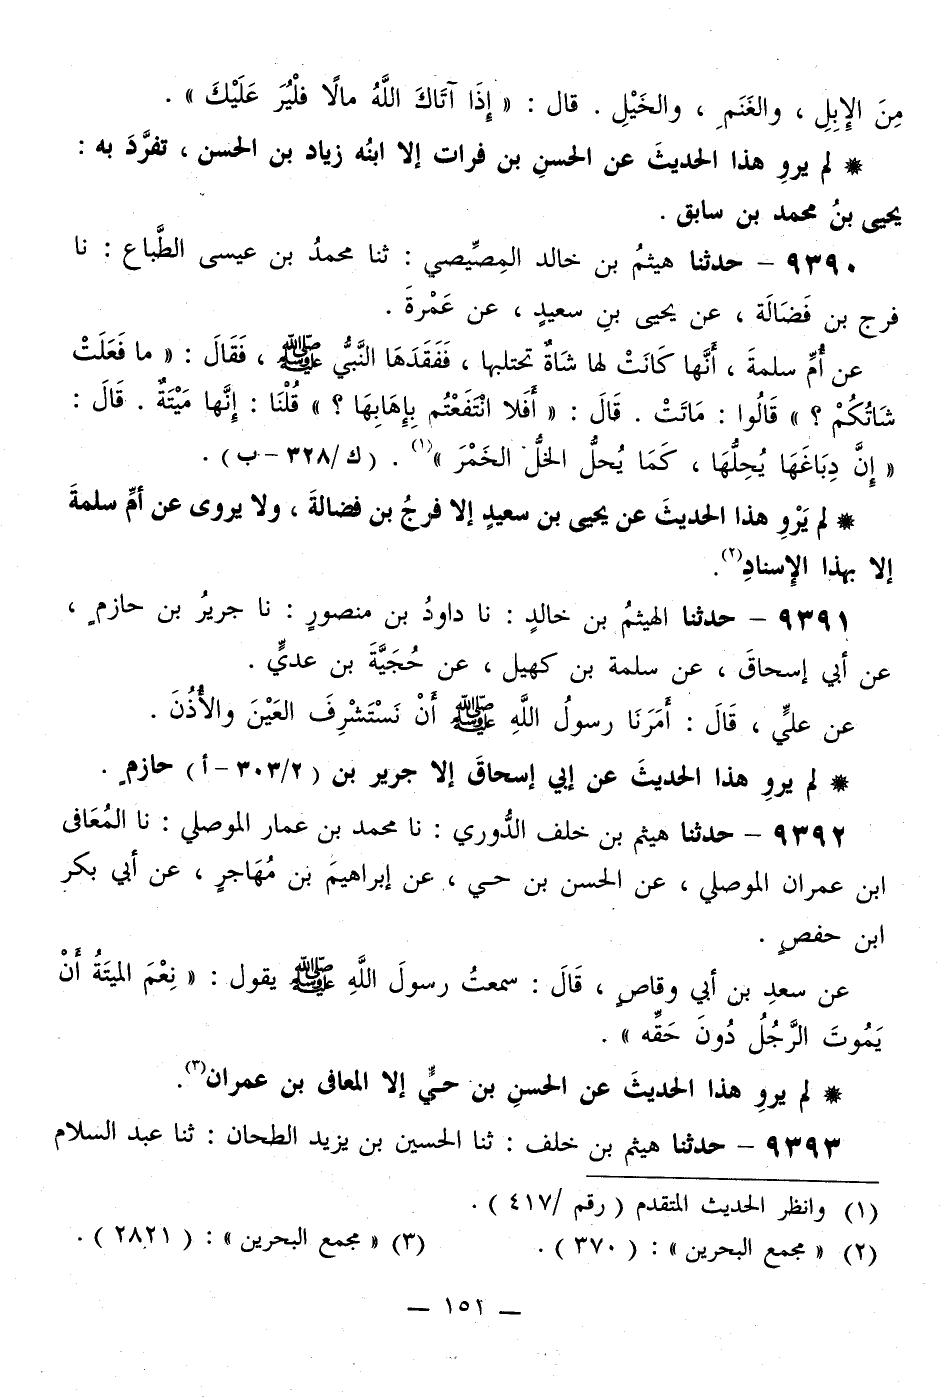 مِنَ الإِبِلِ ، والغَنَمِ ، والخَيْلِ . قال : « إِذَا آتَاكَ اللَّهُ مالًا فلْيُرَ عَلَيْكَ » .
* لم يروِ هذا الحديثَ عن الحسنِ بن فرات إلا ابنُه زياد بن الحسن ، تفرَّدَ به :
يحيى بنُ محمد بن سابق .
٩٣٩٠ - حدثنا هيثمُ بن خالد المِصِّيصي : ثنا محمدُ بن عيسى الطَّباع : نا
فرج بن فَضَالَة ، عن يحيى بنِ سعيدٍ ، عن عَمْرةَ .
عن أُمِّ سلمةَ ، أَنَّها كَانَتْ لها شَاةٌ تحتلبها ، فَفَقَدَهَا النَّبيُّ ﷺ ، فَقَالَ : « ما فَعَلَتْ
شَاتُكُمْ ؟ » قَالُوا : مَاتَتْ . قَالَ : « أَفَلا انْتَفَعْتُم بِإِهَابِهَا ؟ » قُلْنَا : إِنَّها مَيْتَةٌ . قَالَ :
« إِنَّ دِبَاغَهَا يُحِلُّهَا ، كَمَا يُحلُّ الخلُّ الخَمْرَ »(١) . ( ك/٣٢٨ - ب ) .
* لم يَرْوِ هذا الحديثَ عن يحيى بن سعيدٍ إلا فرجُ بن فضالةَ ، ولا يروى عن أمِّ سلمةَ
إلا بهذا الإِسنادِ(٢).
٩٣٩١ - حدثنا الهيثمُ بن خالدٍ : نا داودُ بن منصورٍ : نا جريرُ بن حازمٍ ،
عن أبي إسحاقَ ، عن سلمة بن كهيل ، عن حُجَيَّةَ بن عديٍّ .
عن عليٍّ ، قَالَ : أَمَرَنَا رسولُ اللَّهِ ﷺ أَنْ نَسْتَشْرِفَ العَيْنَ والأُذُنَ .
* لم يروِ هذا الحديثَ عن إبي إسحاقَ إلا جرير بن ( ٣٠٣/٢ - أ ) حازمٍ .
٩٣٩٢ - حدثنا هيثم بن خلف الدُّوري : نا محمد بن عمار الموصلي : نا المُعَافى
ابن عمران الموصلي ، عن الحسن بن حي ، عن إبراهيمَ بن مُهَاجرٍ ، عن أبي بكر
ابن حفصٍ .
عن سعدِ بن أبي وقاصٍ ، قَالَ : سمعتُ رسولَ اللَّهِ ﷺ يقول : « نِعْمَ الميتَةُ أَنْ
يَمُوتَ الرَّجُلُ دُونَ حَقِّه » .
* لم يروِ هذا الحديثَ عن الحسنِ بن حيٍّ إلا المعافى بن عمران(٣).
٩٣٩٣ - حدثنا هيثم بن خلف : ثنا الحسين بن يزيد الطحان : ثنا عبد السلام
(١) وانظر الحديث المتقدم ( رقم /٤١٧ ) .
(٢) « مجمع البحرين » : ( ٣٧٠ ) . (٣) « مجمع البحرين » : ( ٢٨٢١ ) .
— ١٥٢ —